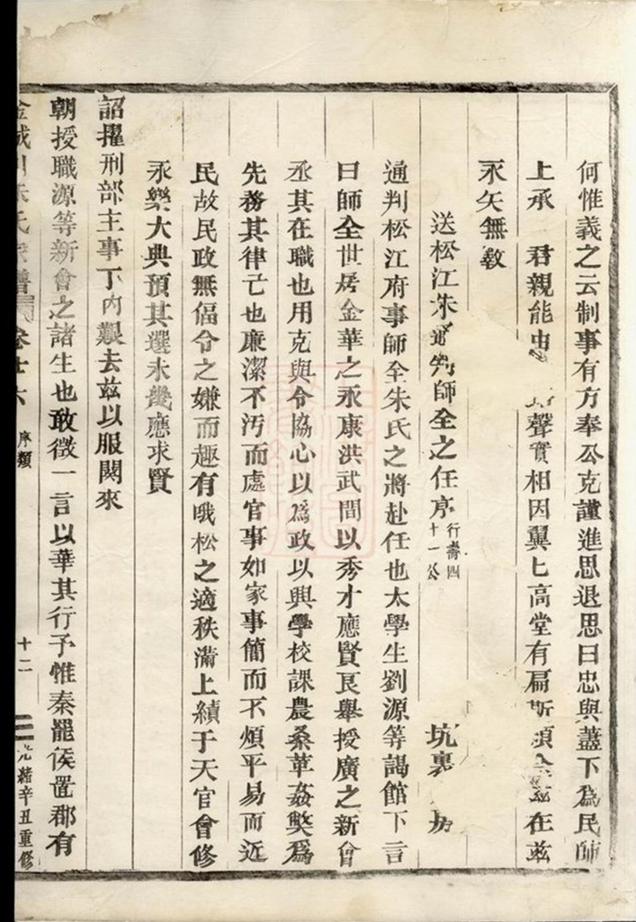 何惟義之云制事有方奉公克謹進思退思曰忠與藎下爲民師
上承　君親能忠　聲實相因翼七高堂有扁斯頭　茲在茲
永矢無斁
送松江朱通判師全之任序行壽四十一公　坑裏　房
通判松江府事師全朱氏之將赴任也太學生劉源等謁館下言
曰師全世居金華之永康洪武間以秀才應賢良舉授廣之新會
丞其在職也用克與令協心以爲政以興學校課農桑革姦獘爲
先務其律亡也廉潔不汚而處官事如家事簡而不煩平易而近
民故民政無偪令之嫌而趣有哦松之適秩滿上績于天官會修
永樂大典預其選未幾應求賢
詔擢刑部主事丁內艱去茲以服闋來
朝授職源等新會之諸生也敢徵一言以華其行予惟秦罷侯置郡有
金城川朱氏宗譜　卷十六　序類　十二　光緒辛丑重修